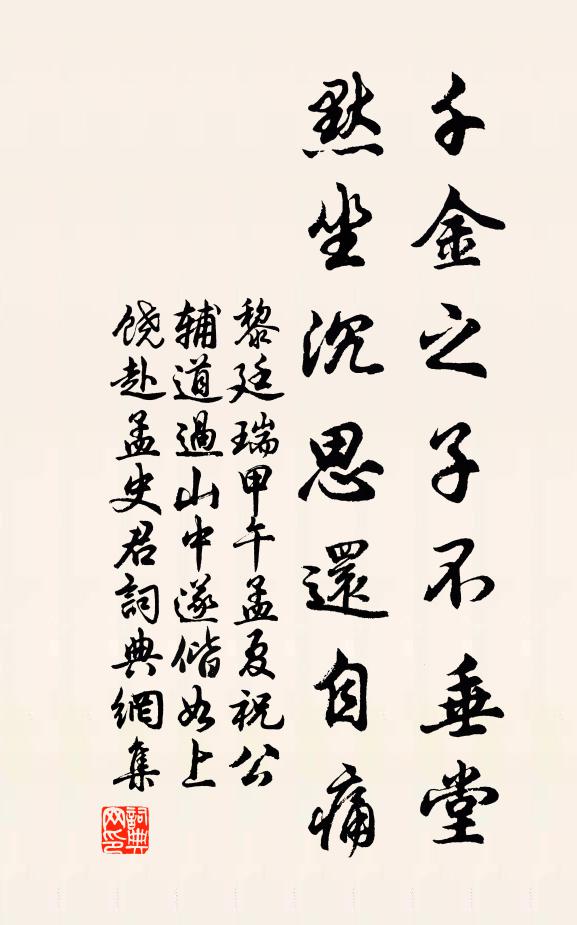 千金之子不垂堂
默坐沉思還自痛
黎廷瑞甲午孟夏祝公
辅道過山中遂偕如上
饶赴孟史君詞典網集
詞典
网印